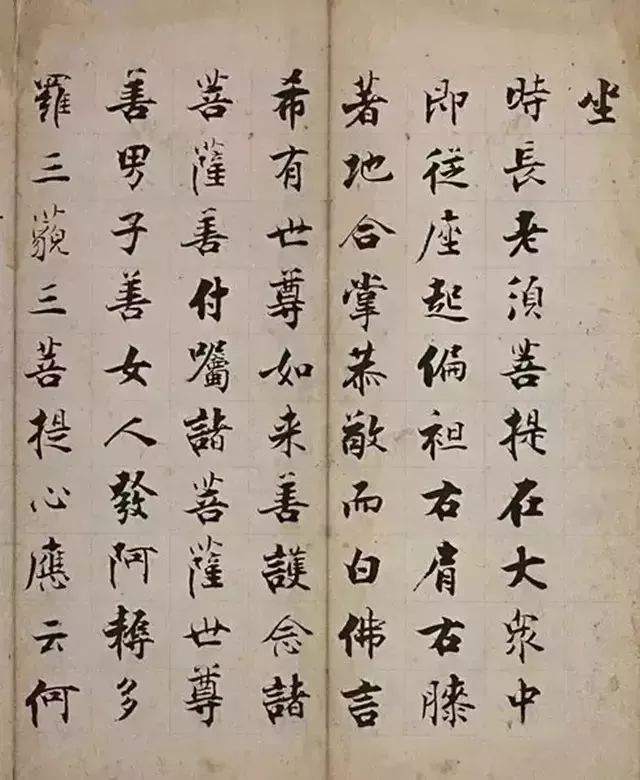 坐
時長老須菩提在大眾中
即從座起偏袒右肩右膝
著地合掌恭敬而白佛言
希有世尊如来善護念諸
菩薩善付囑諸菩薩世尊
善男子善女人發阿耨多
羅三藐三菩提心應云何